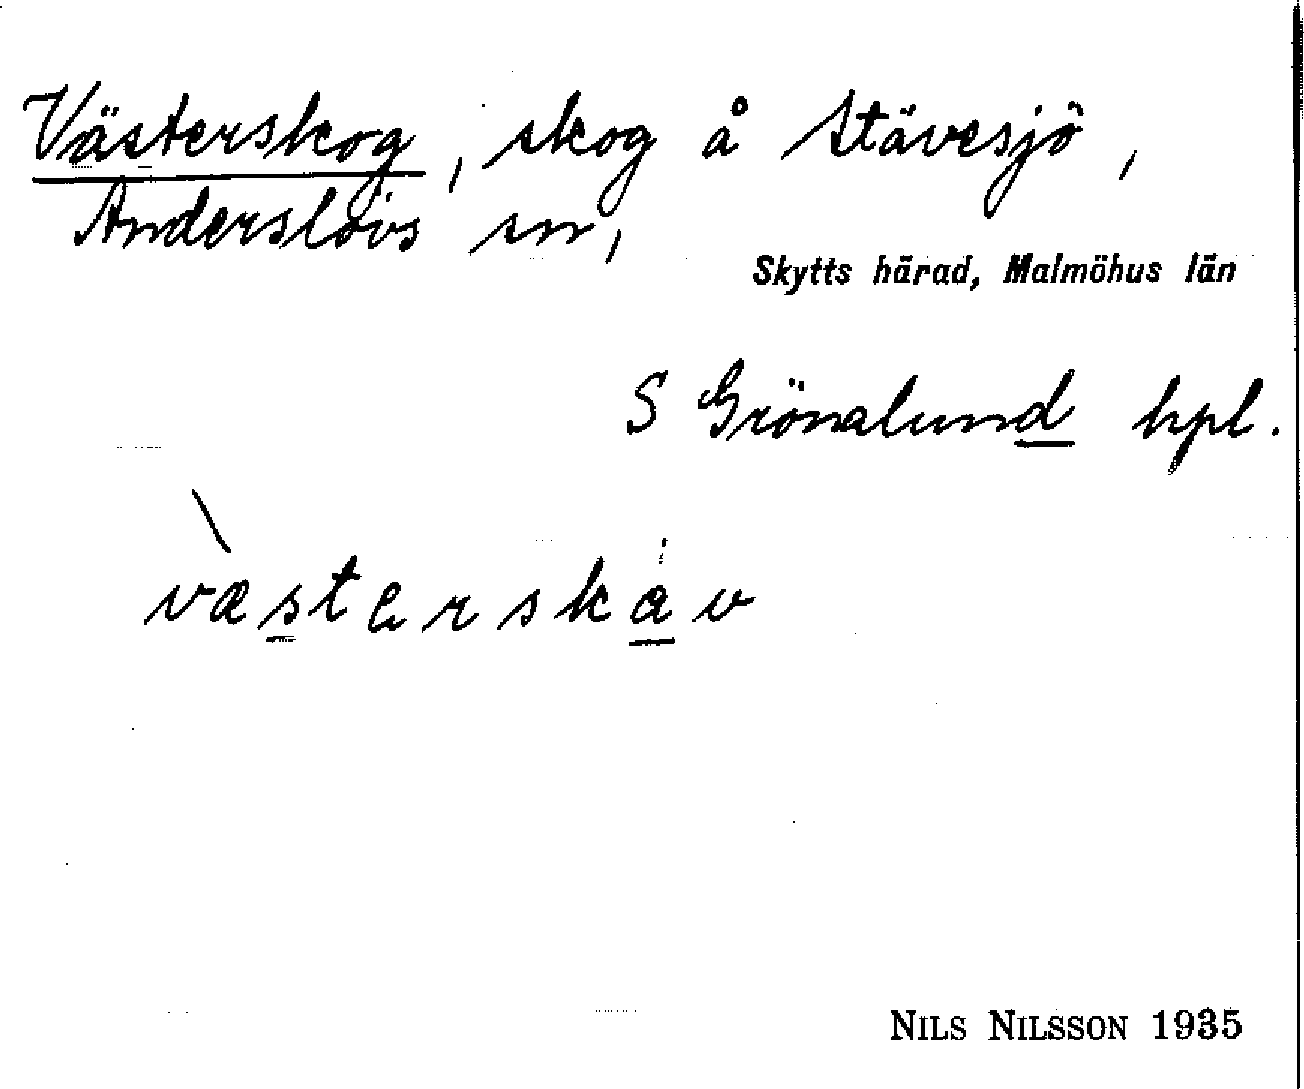 Västerskog, skog å Stävesjö,
Anderslövs sn,
Skytts härad, Malmöhus län
S Grönalund hpl.
væsterskav
NILS NILSSON 1935